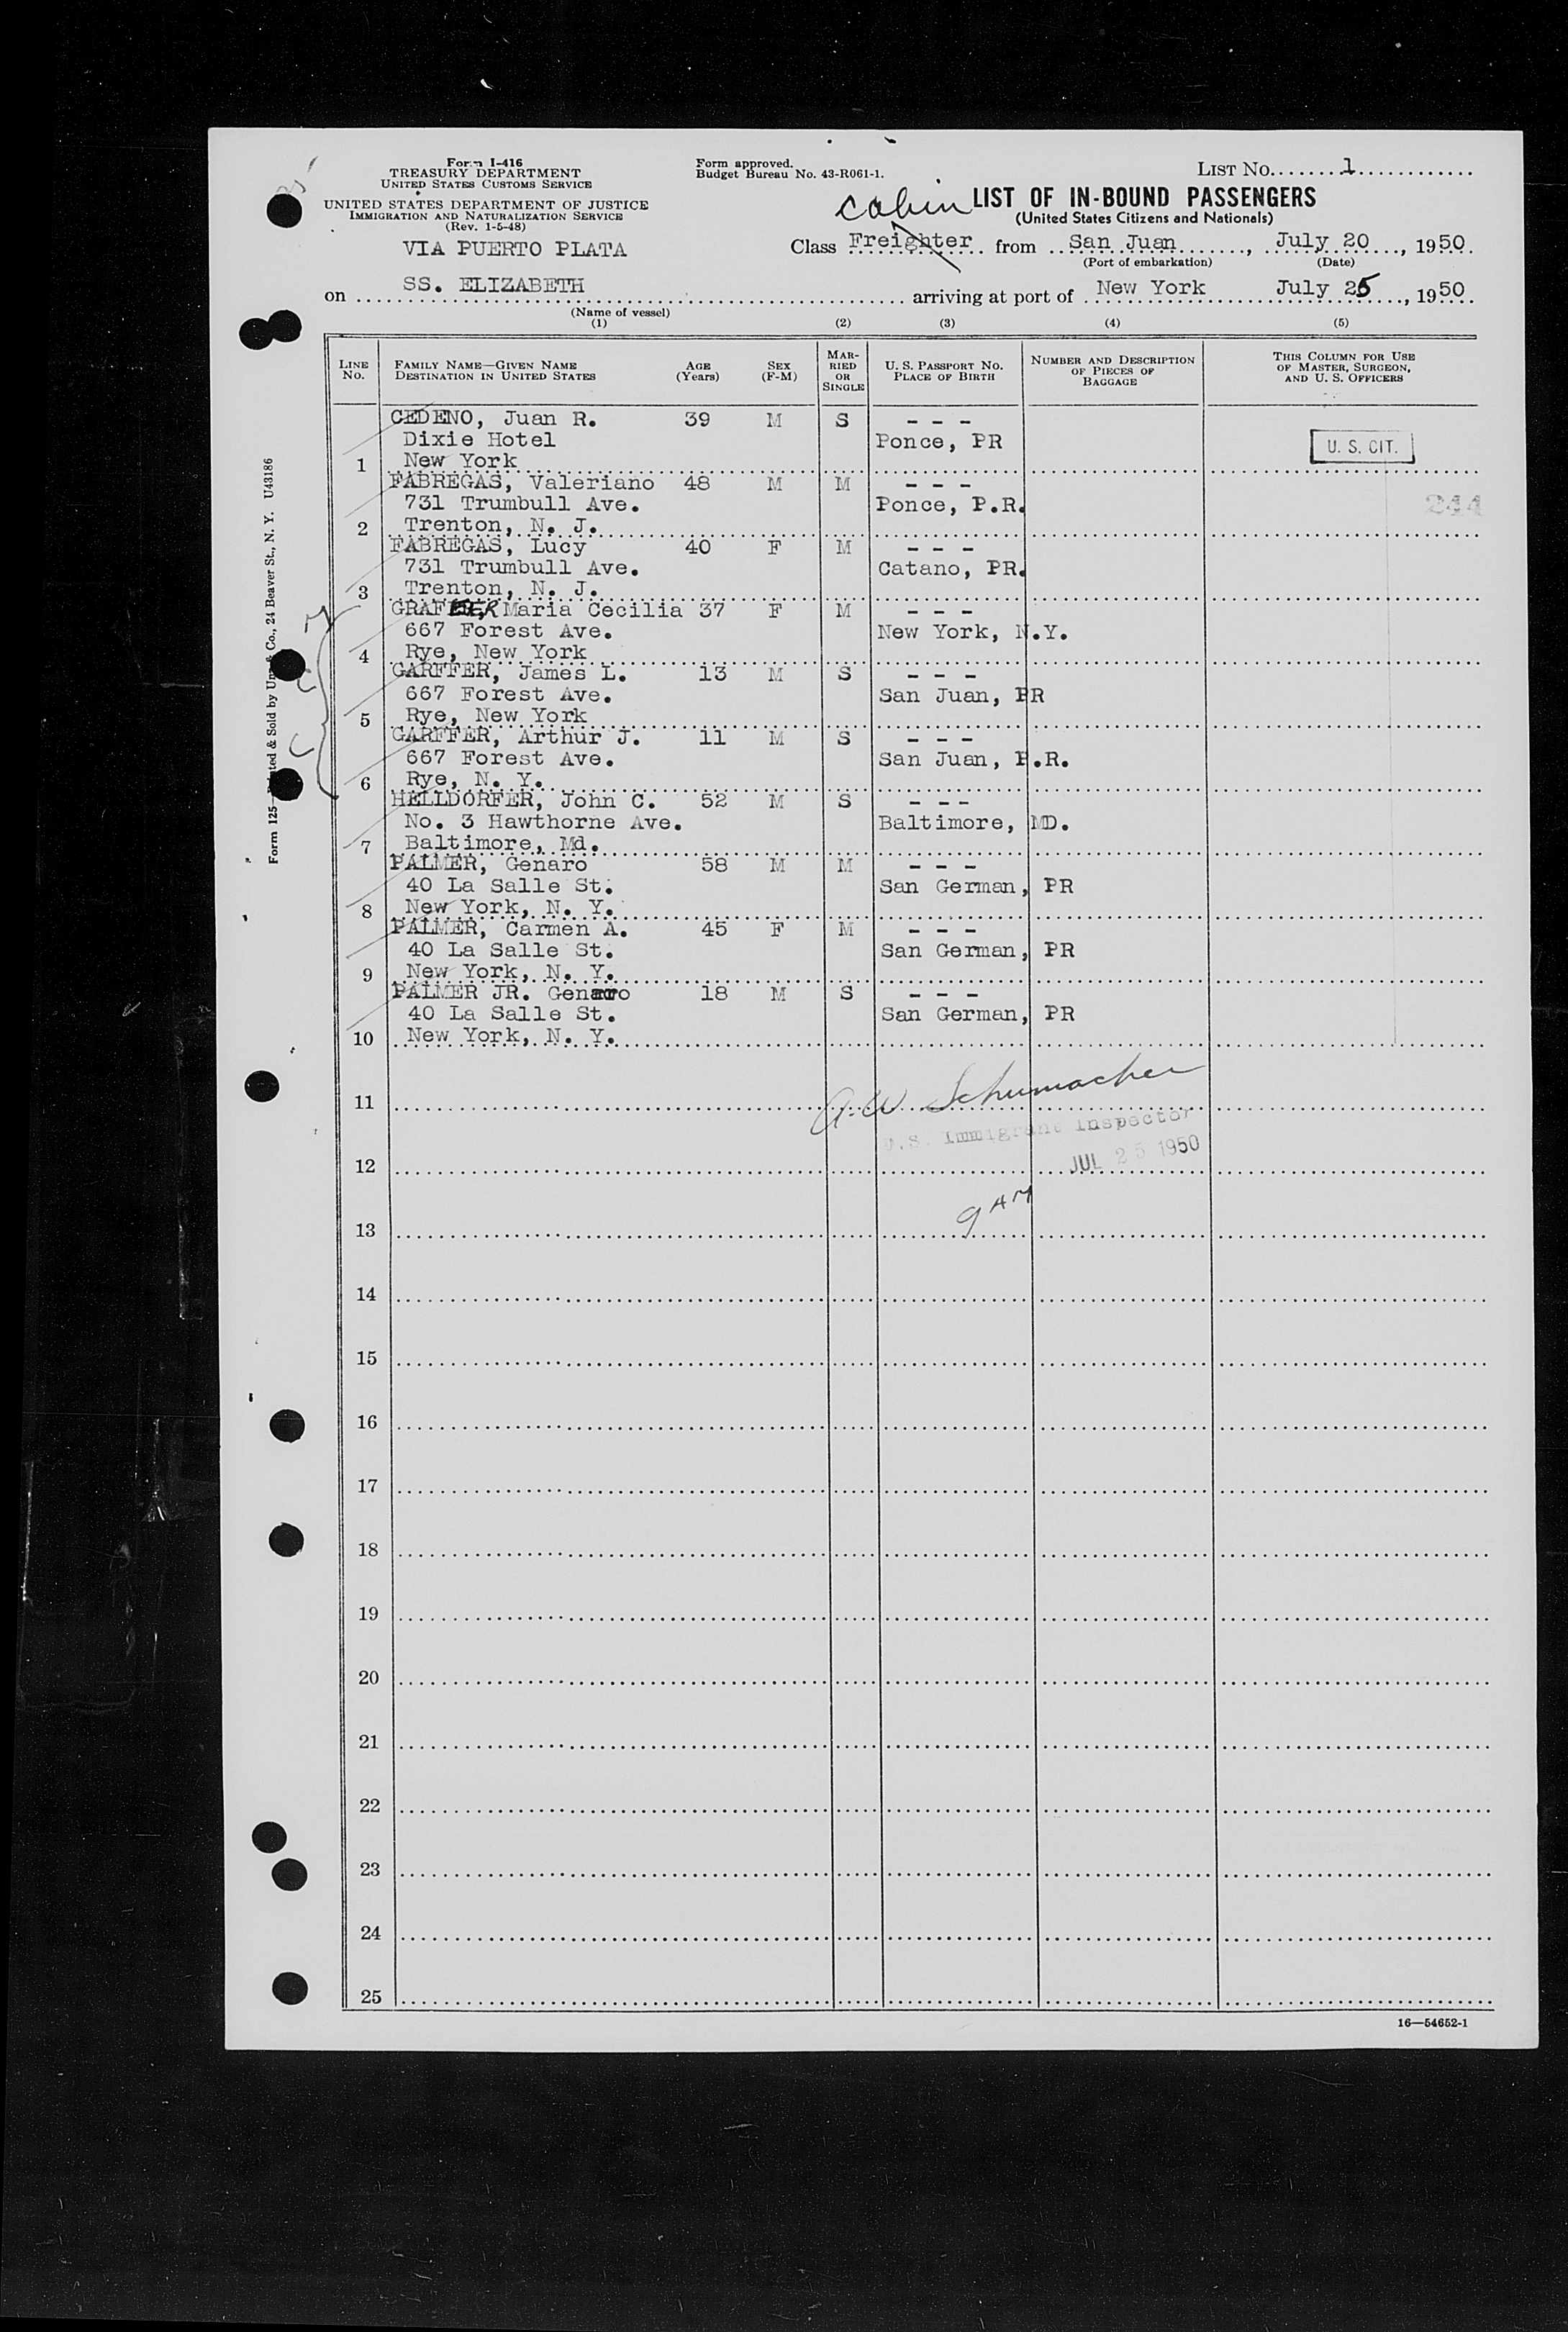 Form I-416
TREASURY DEPARTMENT
UNITED STATES CUSTOMS SERVICE
UNITED STATES DEPARTMENT OF JUSTICE
IMMIGRATION AND NATURALIZATION SERVICE
(Rev. 1-5-48)
Form approved.
Budget Bureau No. 43-R061-1.
LIST No. 1
cabin LIST OF IN-BOUND PASSENGERS
(United States Citizens and Nationals)
VIA PUERTO PLATA
Class Freighter from San Juan, July 20, 1950
(Port of embarkation) (Date)
on SS. ELIZABETH arriving at port of New York July 25, 1950
(Name of vessel)
(1) (2) (3) (4) (5)
LINE No. FAMILY NAME—GIVEN NAME DESTINATION IN UNITED STATES AGE (Years) SEX (F-M) MARRIED OR SINGLE U. S. PASSPORT No. PLACE OF BIRTH NUMBER AND DESCRIPTION OF PIECES OF BAGGAGE THIS COLUMN FOR USE OF MASTER, SURGEON, AND U. S. OFFICERS
CEDENO, Juan R. 39 M S - - -
Dixie Hotel Ponce, PR U. S. CIT.
1 New York
FABREGAS, Valeriano 48 M M - - -
731 Trumbull Ave. Ponce, P.R. 244
2 Trenton, N. J.
FABREGAS, Lucy 40 F M - - -
731 Trumbull Ave. Catano, PR.
3 Trenton, N. J.
GRAFFER Maria Cecilia 37 F M - - -
667 Forest Ave. New York, N.Y.
4 Rye, New York
GARFFER, James L. 13 M S - - -
667 Forest Ave. San Juan, PR
5 Rye, New York
GARFFER, Arthur J. 11 M S - - -
667 Forest Ave. San Juan, P.R.
6 Rye, N. Y.
HELLDORFER, John C. 52 M S - - -
No. 3 Hawthorne Ave. Baltimore, MD.
7 Baltimore, Md.
PALMER, Genaro 58 M M - - -
40 La Salle St. San German, PR
8 New York, N. Y.
PALMER, Carmen A. 45 F M - - -
40 La Salle St. San German, PR
9 New York, N. Y.
PALMER JR. Genaro 18 M S - - -
40 La Salle St. San German, PR
10 New York, N. Y.
11 A.W Schumacher
U.S. Immigrant Inspector
12 JUL 25 1950
9 AM
13
14
15
16
17
18
19
20
21
22
23
24
25
16—54652-1